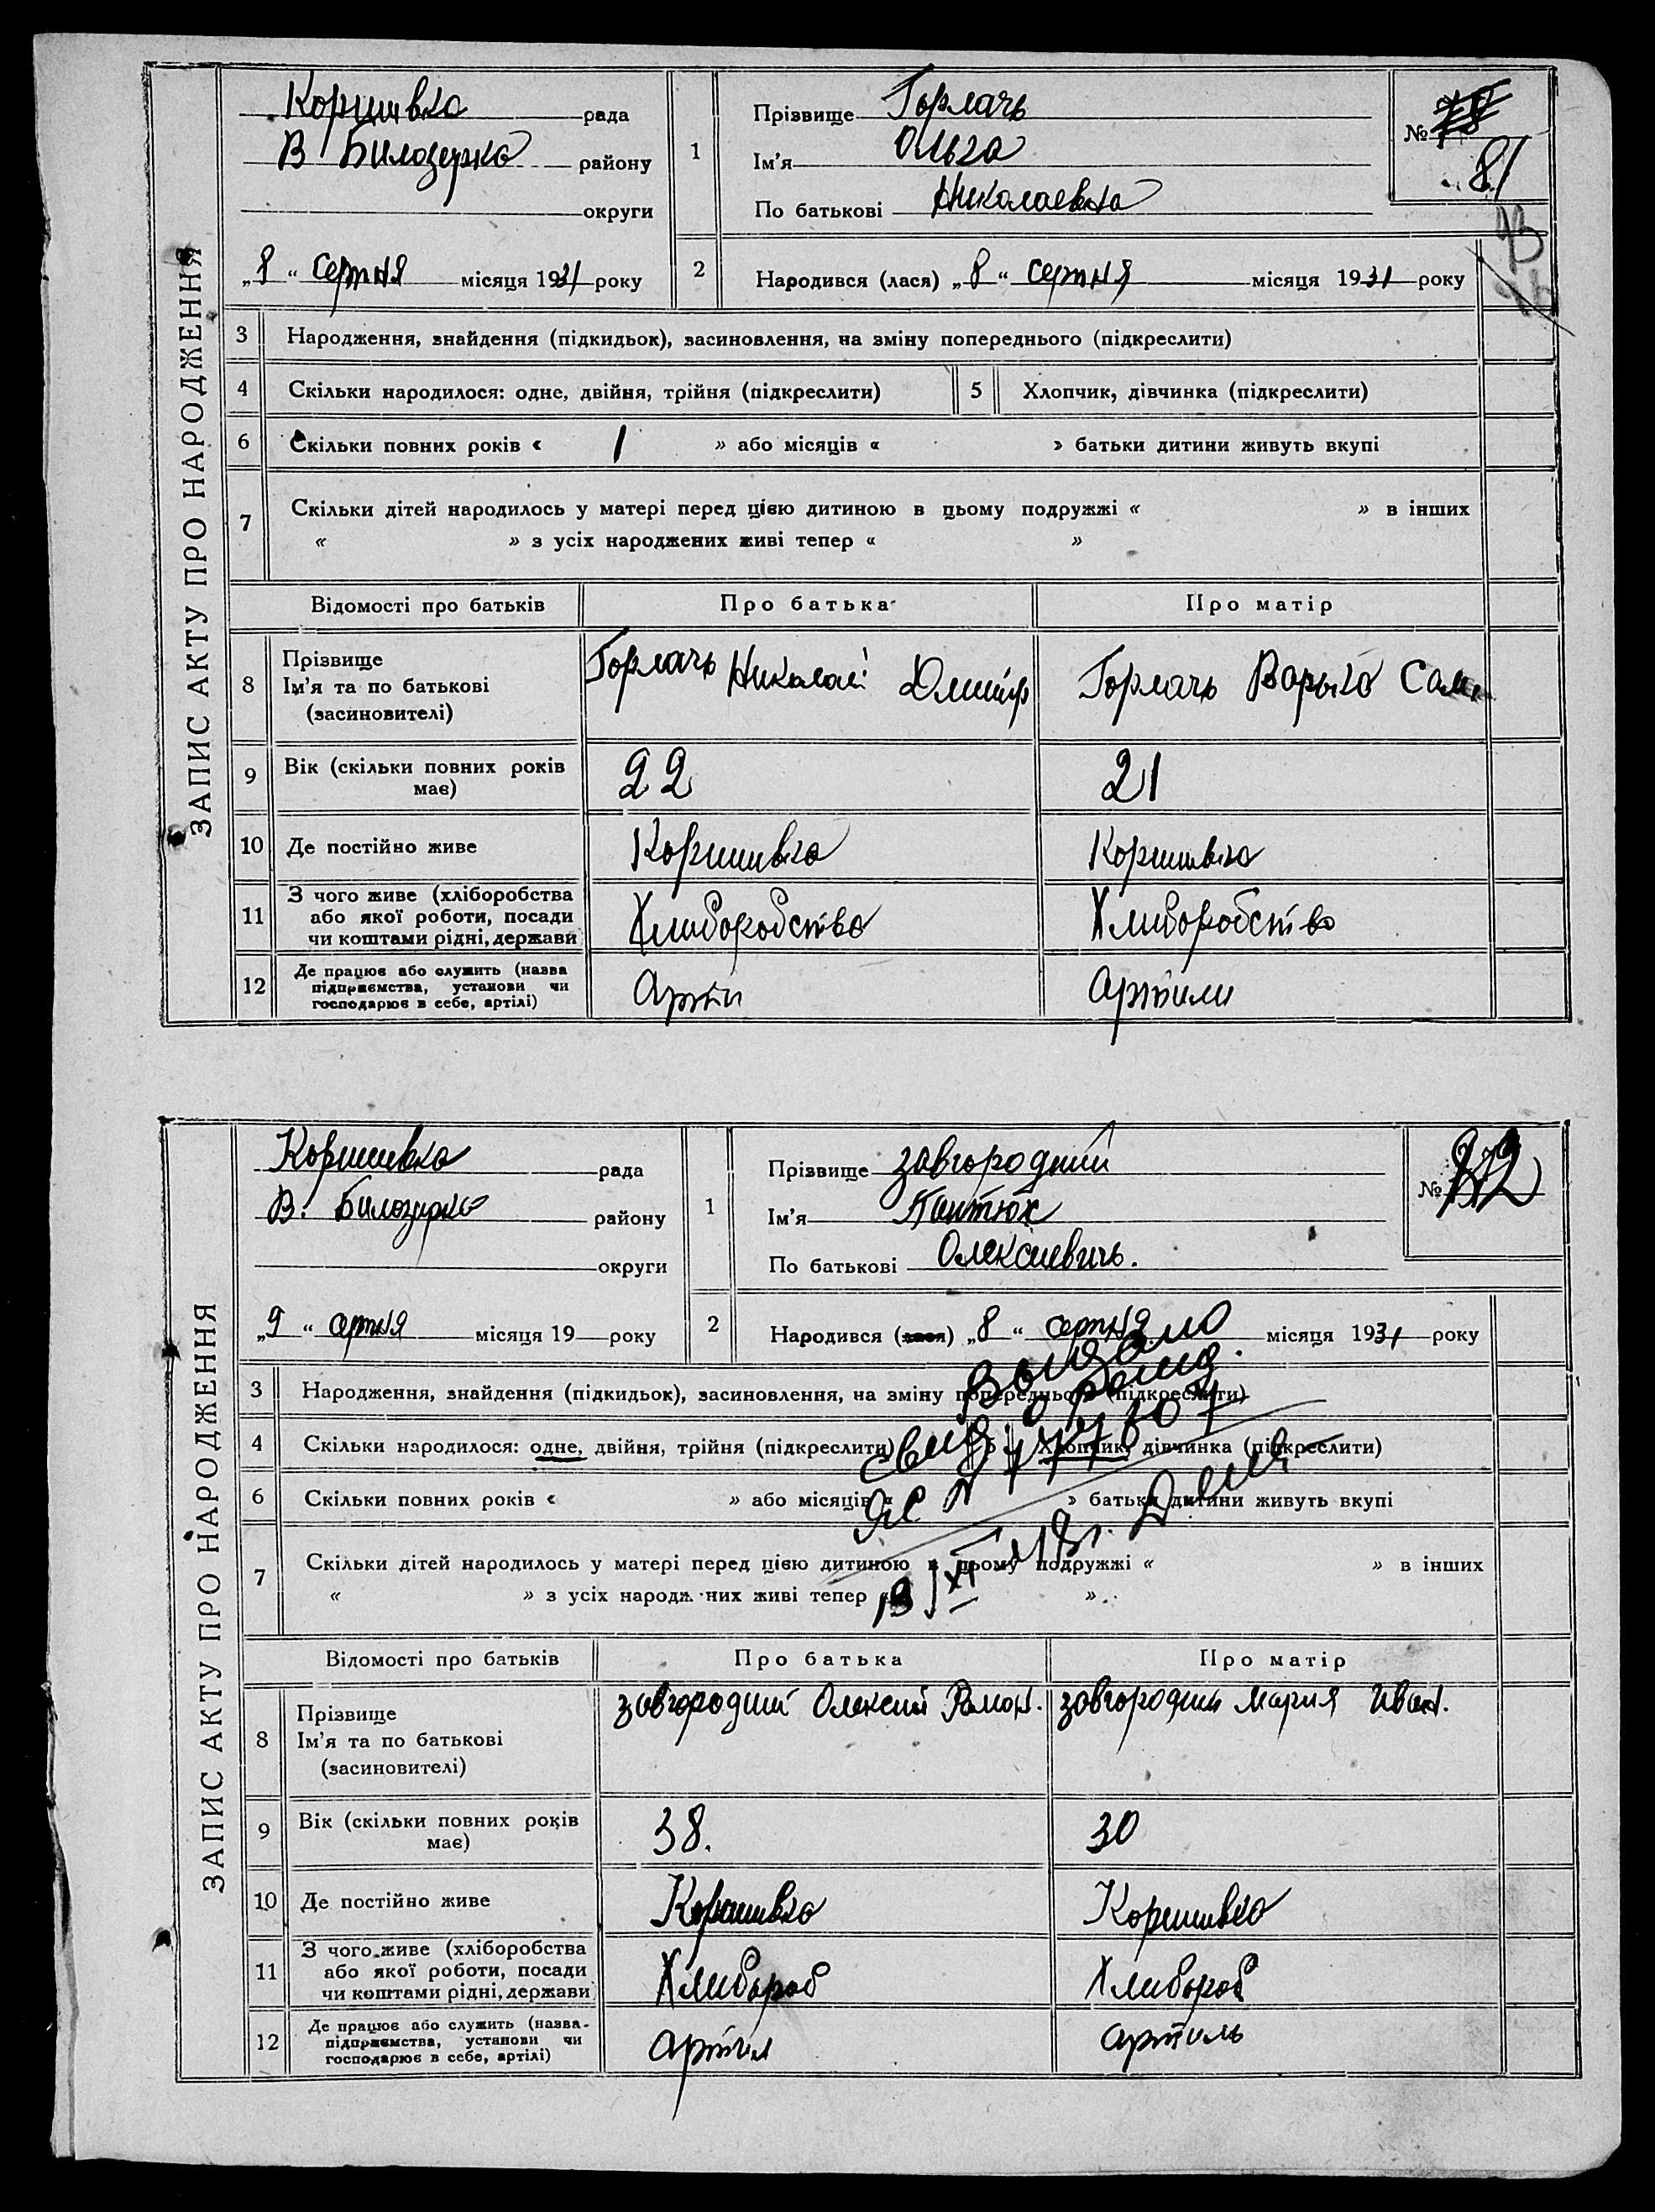 ЗАПИС АКТУ ПРО НАРОДЖЕННЯ
Коршивка рада
В Билозерка району
округи
„8“ серпня місяця 1931 року
1
Прізвище Горлачь
Ім'я Ольга
По батькові Николаевна
№ 78
81
2
Народився (лася) „8“ серпня місяця 1931 року
3 Народження, знайдення (підкидьок), засиновлення, на зміну попереднього (підкреслити)
4 Скільки народилося: одне, двійня, трійня (підкреслити) 5 Хлопчик, дівчинка (підкреслити)
6 Скільки повних років « 1 » або місяців « » батьки дитини живуть вкупі
7 Скільки дітей народилось у матері перед цією дитиною в цьому подружжі « » в інших
« » з усіх народжених живі тепер « »
Відомості про батьків Про батька Про матір
8 Прізвище
Ім'я та по батькові
(засиновителі)
Горлачь Николай Дмитр Горлачь Варька Сам
9 Вік (скільки повних років має) 22 21
10 Де постійно живе Коршивка Коршивка
11 З чого живе (хліборобства
або якої роботи, посади
чи коштами рідні, держави
Хлиборобство Хлиборобство
12 Де працює або служить (назва
підприємства, установи чи
господарює в себе, артілі)
Артили
ЗАПИС АКТУ ПРО НАРОДЖЕННЯ
Коршивка рада
В. Билозирка району
округи
„9“ серпня місяця 19 року
1
Прізвище Завгородний
Ім'я
По батькові Олексиевичь.
№
2
Народився (лася) „8“ серпня місяця 1931 року
3 Народження, знайдення (підкидьок), засиновлення, на зміну попереднього (підкреслити)
4 Скільки народилося: одне, двійня, трійня (підкреслити) 5 Хлопчик, дівчинка (підкреслити)
6 Скільки повних років « » або місяців « » батьки дитини живуть вкупі
7 Скільки дітей народилось у матері перед цією дитиною в цьому подружжі « » в інших
« » з усіх народжених живі тепер « »
Выдано
свид. о рожд.
Відомості про батьків Про батька Про матір
8 Прізвище
Ім'я та по батькові
(засиновителі)
завгородний Олексий Роман. завгородня Мария Иван.
9 Вік (скільки повних років має) 38. 30
10 Де постійно живе Коршивка Коршивка
11 З чого живе (хліборобства
або якої роботи, посади
чи коштами рідні, держави
Хлибороб Хлибороб
12 Де працює або служить (назва
підприємства, установи чи
господарює в себе, артілі)
артил артиль